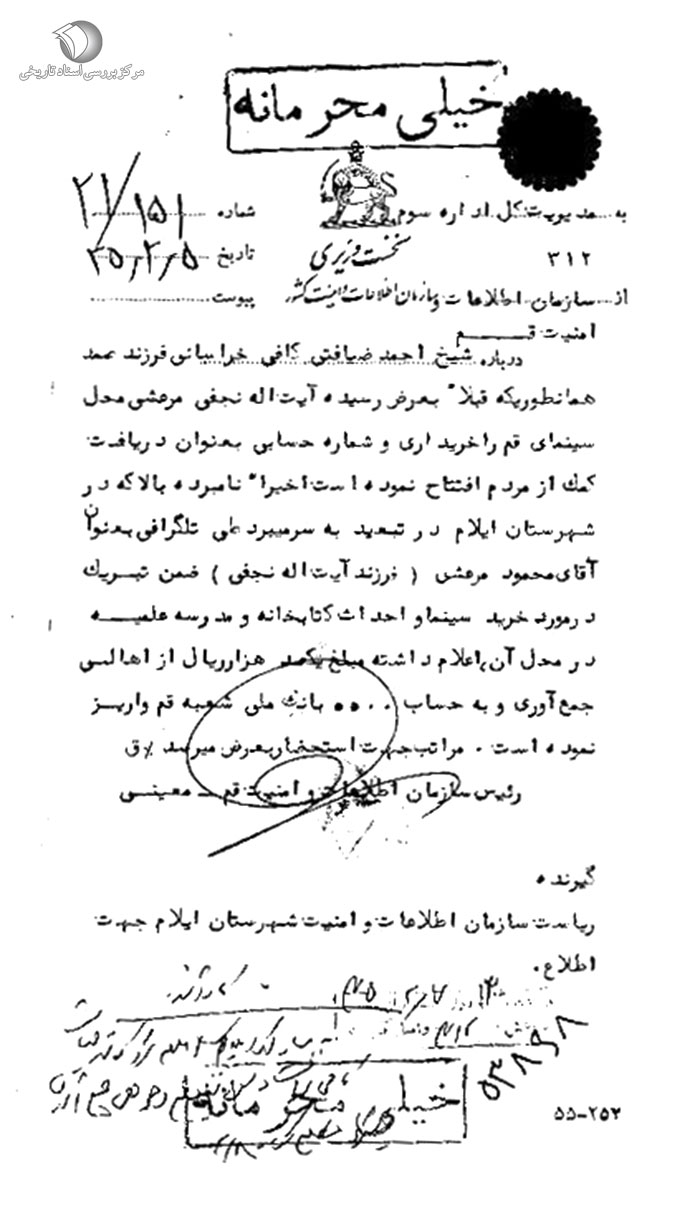 مرکز بررسی اسناد تاریخی
خیلی محرمانه
به مدیریت کل اداره سوم
شماره ۲۱/۱۵۱
۳۱۲
نخست وزیری
تاریخ ۳۵/۲/۵
از سازمان اطلاعات و سازمان اطلاعات و امنیت کشور
پیوست
امنیت قم
درباره شیخ احمد ضیافتی کافی خراسانی فرزند محمد
همانطوریکه قبلا" بعرض رسیده آیت اله نجفی مرعشی محل
سینمای قم را خریداری و شماره حسابی بعنوان دریافت
کمک از مردم افتتاح نموده است اخیرا" نامبرده بالا که در
شهرستان ایلام در تبعید به سرمیبرد طی تلگرافی بعنوان
آقای محمود مرعشی ( فرزند آیت اله نجفی ) ضمن تبریک
در مورد خرید سینما و احداث کتابخانه و مدرسه علمیه
در محل آن، اعلام داشته مبلغ یکصد هزار ریال از اهالی
جمع آوری و به حساب ۵۰۰۰ بانک ملی شعبه قم واریز
نموده است . مراتب جهت استحضار بعرض میرسد %ق
رئیس سازمان اطلاعات و امنیت قم - معینی
گیرنده
ریاست سازمان اطلاعات و امنیت شهرستان ایلام جهت
اطلاع .
۵۳۸۹۸
خیلی محرمانه
۵۵-۲۵۲